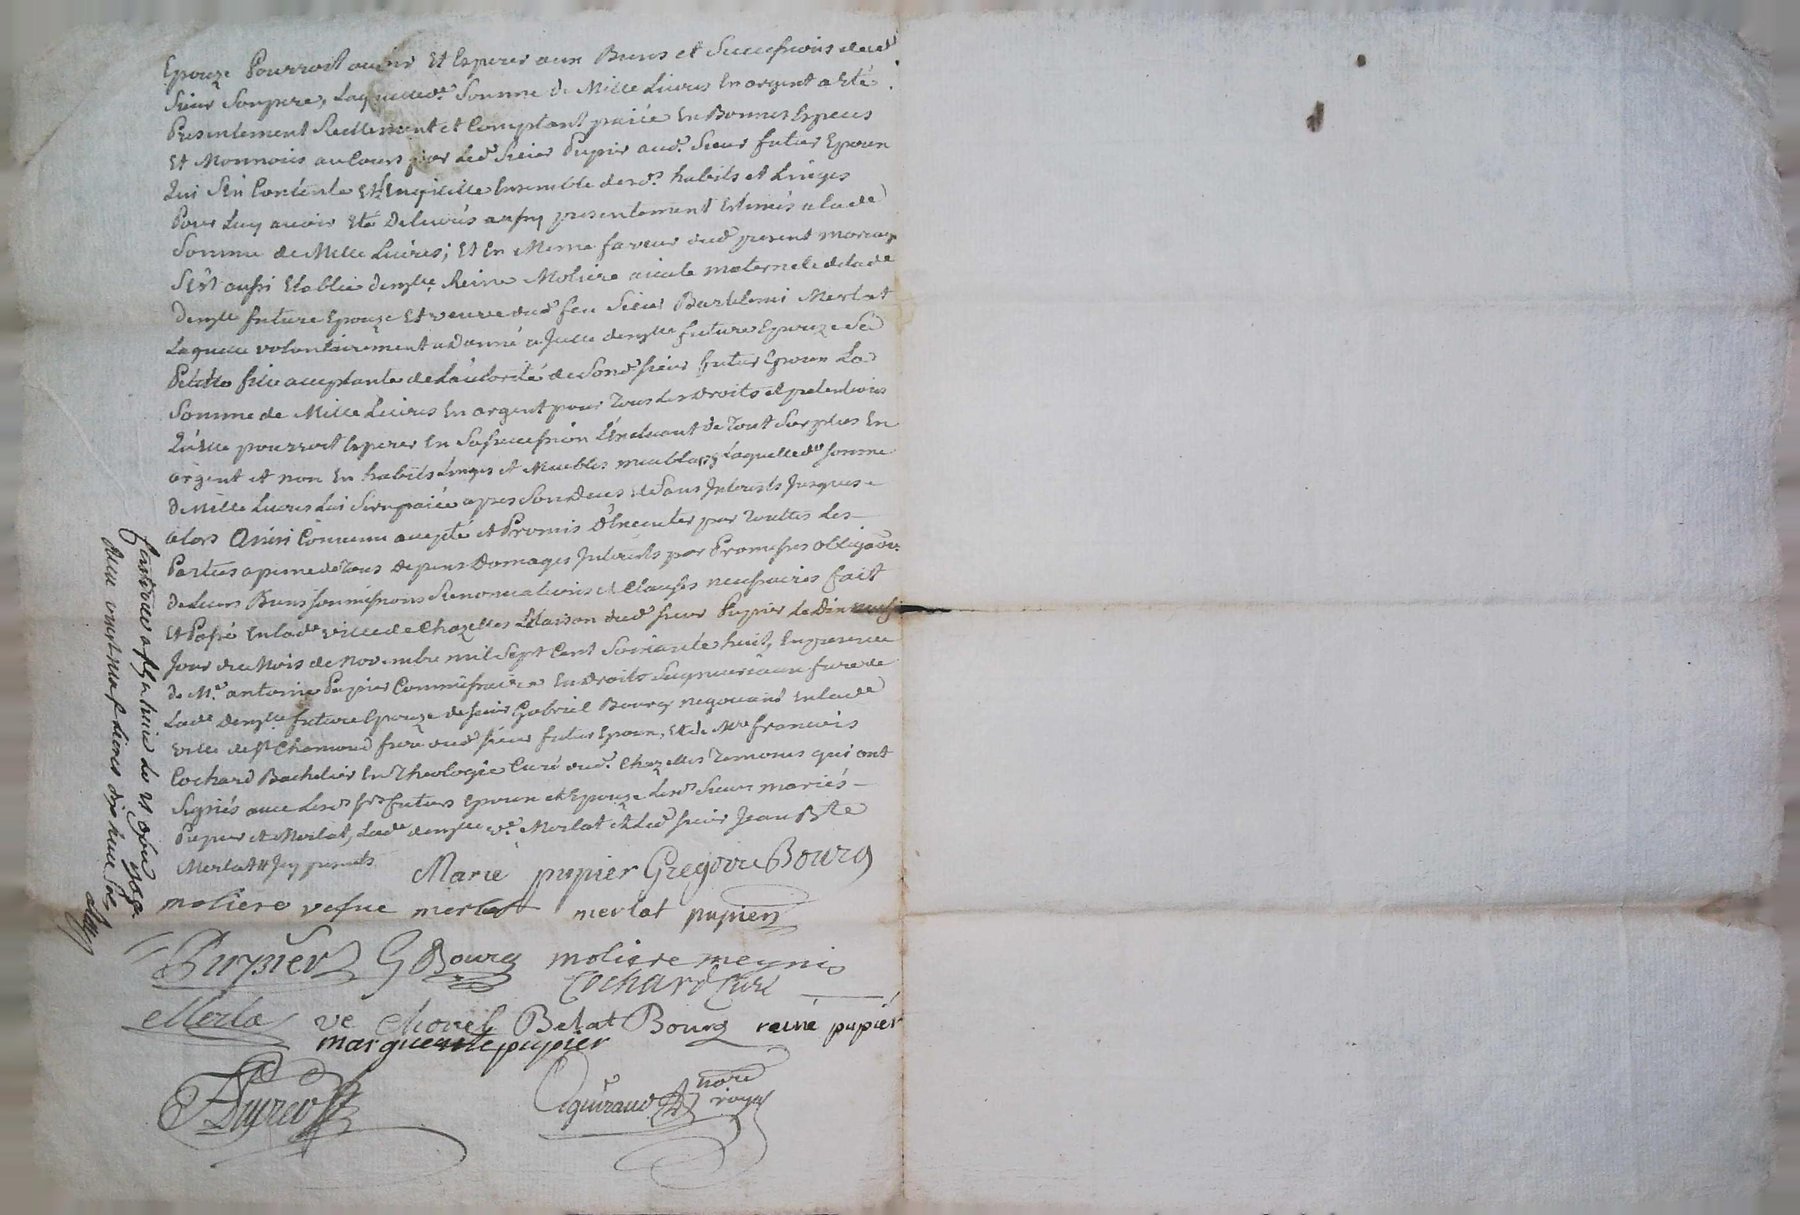 Epouze Pourroit avoir Et Esperer aux Biens et Successions dudt
Sieur Son pere, Laquelle de Somme de Mille Livres En argent a Eté
Presentement Reellement et Comptant paiée En Bonnes Especes
Et Monnoies au Cours par Led. Sieur Pupier aud. Sieur futur Epoux
Qui S'En Contente Et Ensemble desd. habits et Linges
Pour Luy avoir Eté Delivrés aussy presentement Estimés a lad
Somme de Mille Livres; Et En Meme faveur dud present mariage
S'Est aussi Etablie demlle Reine Moliere aieule maternelle de lade
Demlle future Epouze Et veuve dud feu Sieur Barthelemi Merlat
Laquelle volontairement a Donné a Jcelle demlle future Epouze Sa
Petite fille acceptante de L'autorité de Sond Sieur futur Epoux La
Somme de Mille Livres En argent pour Tous Les Droits et pretentions
Qu'elle pourroit Esperer En Sa succession L'Excluant de Tout Surplus En
argent et non En habits Linges et Meubles meublans Laquelle de somme
De Mille Livres Lui Sera paiée apres Son Deces et Sans Interests Jusques
alors Ainsi Convenu accepté et Promis D'Executer par Toutes Les
Parties a peine de Tous Depens Domages Interests par Promesses obligaõn
de Leurs Biens soumissions Renonciations et Clauses necessaires fait
Et Passé En lade ville de Chazelles Maison dud sieur Pupier Le Dix
Jour du Mois de Novembre mil Sept Cent Soixante huit, En presence
de Me antoine Pupier Commissaire En Droits Seigneuriaux frere de
Lade Demlle future Epouze de Sieur Gabriel Bourg negociant En lade
ville de St Chamond frere dud sieur futur Epoux, Et de Mre francois
Cochard Bachelier En Theologie Curé dud. Chazelles Temoins qui ont
Signés avec Lesds Srs futurs Epoux et Epouze Lesd Sieurs mariés
Pupier et Merlat, Lade demlle ve Merlat et Led sieur Jean Bte
Merlat
Marie pupier Gregoire Bourg
moliere vefue merlat merlat pupier
Pupier G Bourg moliere meynis
Cochard Curé
Merlat ve Chorel Belat Bourg reine pupier
marguerite pupier